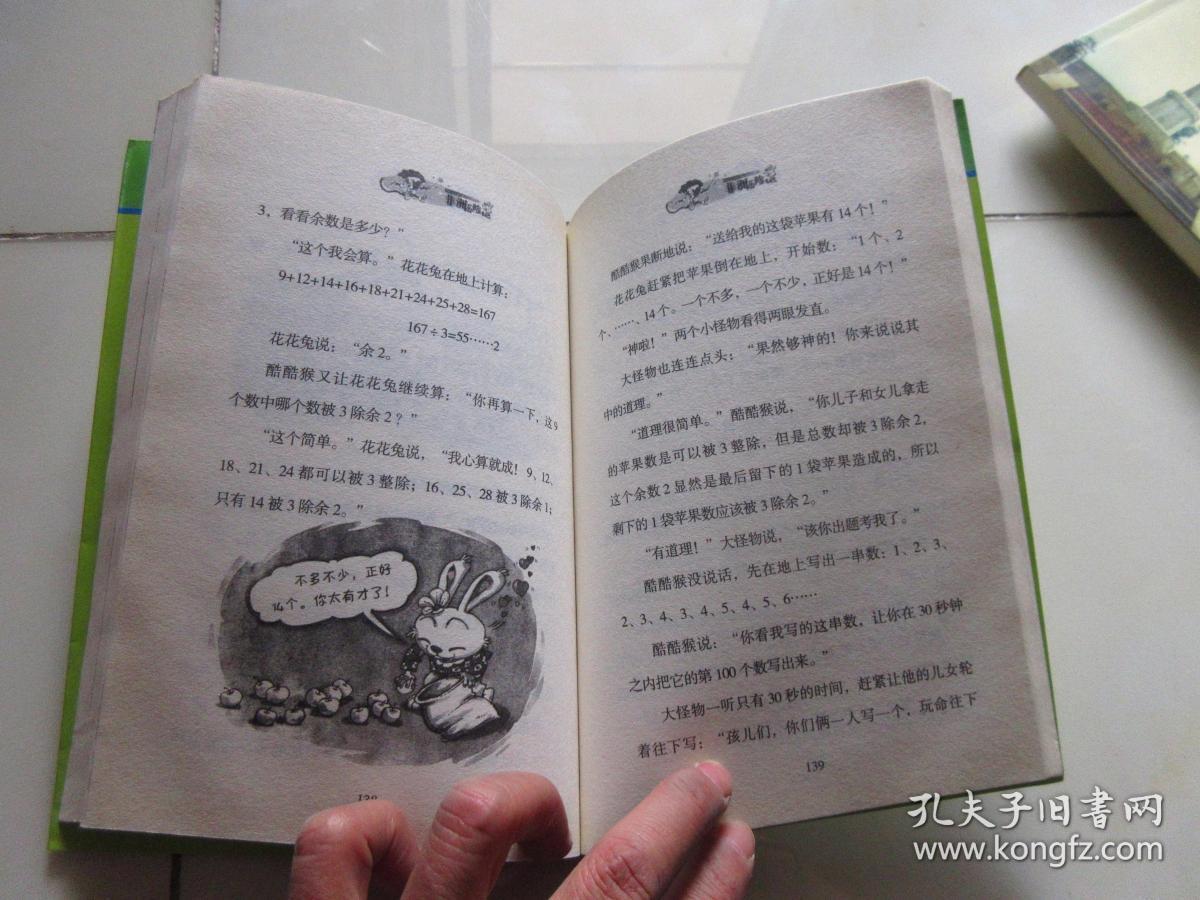 3，看看余数是多少？”
“这个我会算。”花花兔在地上计算：
9+12+14+16+18+21+24+25+28=167
167÷3=55……2
花花兔说：“余2。”
酷酷猴又让花花兔继续算：“你再算一下，这9
个数中哪个数被3除余2？”
“这个简单。”花花兔说，“我心算就成！9、12、
18、21、24都可以被3整除；16、25、28被3除余1；
只有14被3除余2。”
不多不少，正好
14个。你太有才了！
酷酷猴果断地说：“送给我的这袋苹果有14个！”
花花兔赶紧把苹果倒在地上，开始数：“1个、2
个、……、14个。一个不多，一个不少，正好是14个！”
“神啦！”两个小怪物看得两眼发直。
大怪物也连连点头：“果然够神的！你来说说其
中的道理。”
“道理很简单。”酷酷猴说，“你儿子和女儿拿走
的苹果数是可以被3整除，但是总数却被3除余2，
这个余数2显然是最后留下的1袋苹果造成的，所以
剩下的1袋苹果数应该被3除余2。”
“有道理！”大怪物说，“该你出题考我了。”
酷酷猴没说话，先在地上写出一串数：1、2、3、
2、3、4、3、4、5、4、5、6……
酷酷猴说：“你看我写的这串数，让你在30秒钟
之内把它的第100个数写出来。”
大怪物一听只有30秒的时间，赶紧让他的儿女轮
着往下写：“孩儿们，你们俩一人写一个，玩命往下
139
孔夫子旧书网
www.kongfz.com